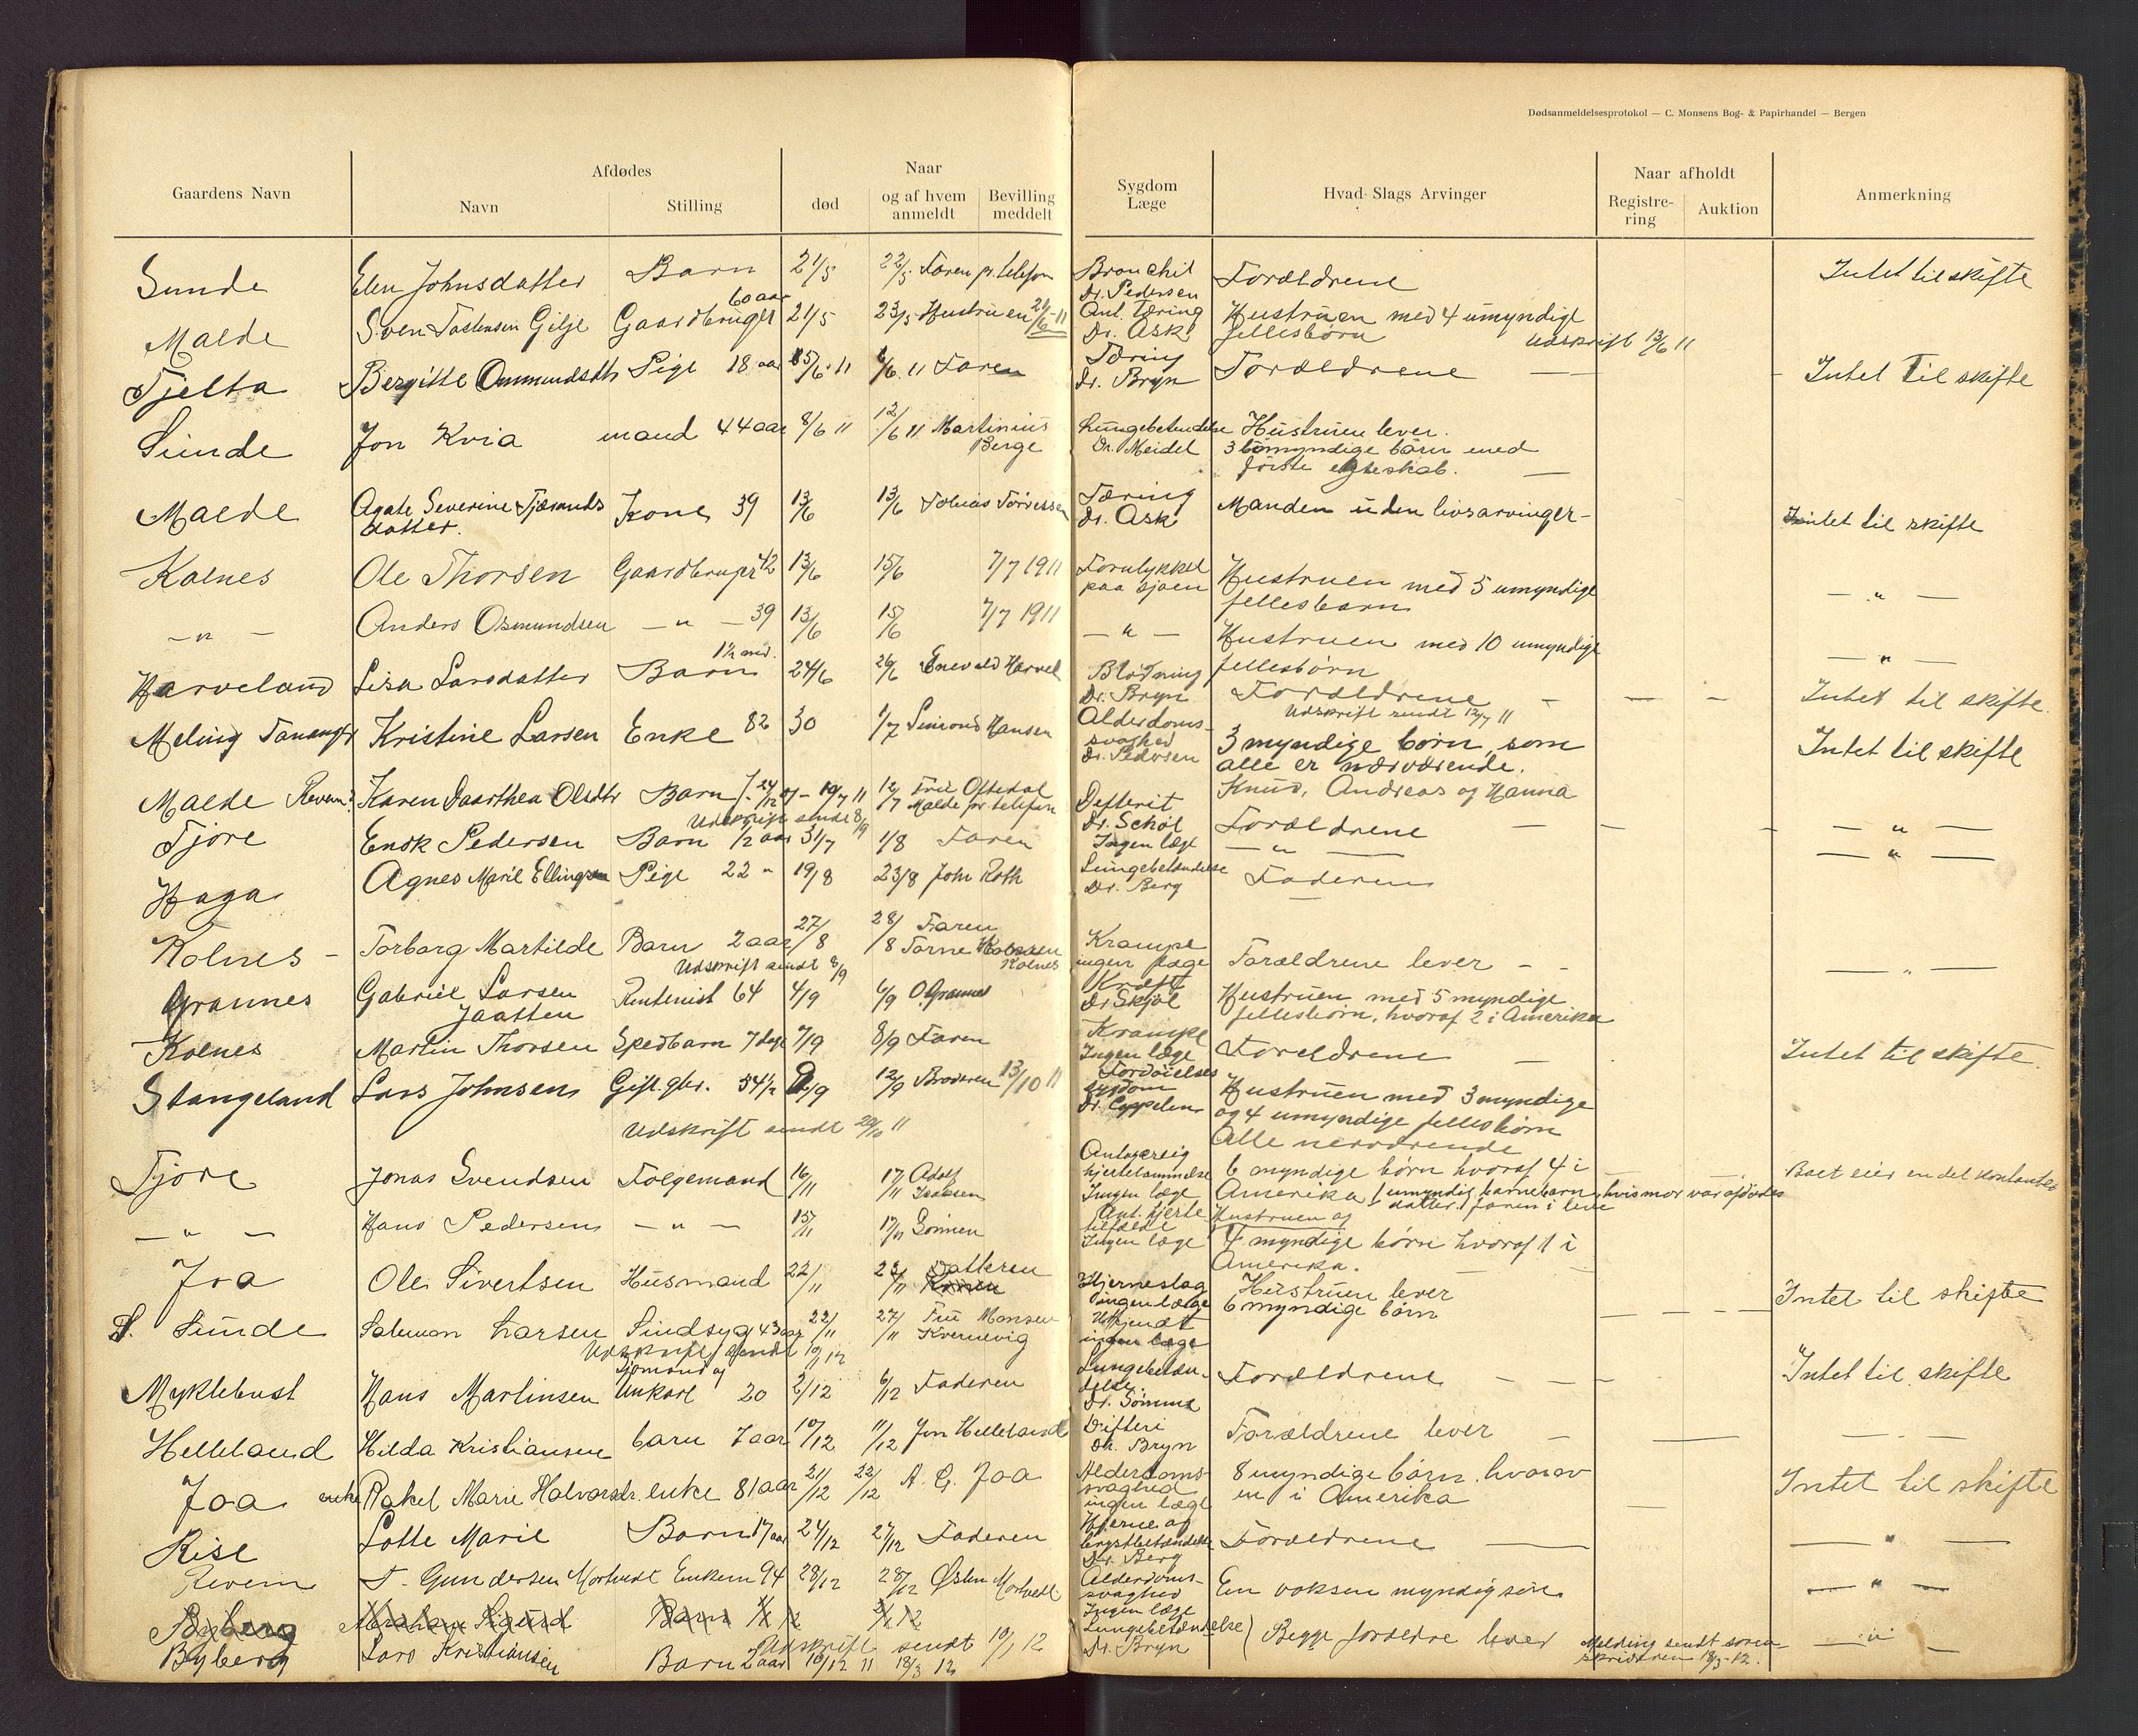 Dødsanmeldelsesprotokol — C. Monsens Bog- & Papirhandel — Bergen
Gaardens Navn | Afdødes Navn | Stilling | Naar død | og af hvem anmeldt | Bevilling meddelt | Sygdom Læge | Hvad Slags Arvinger | Naar afholdt Registrering | Auktion | Anmerkning
Sunde Elen Johnsdatter Barn 21/5 22/5 Faren pr. telefon Bronchit Dr. Pedersen Forældrene Intet til skifte
Malde Sven Tostensen Gilje Gaardbruger 60 aar 21/5 23/5 Hustruen Ant. Tæring Dr. Ask Hustruen med 4 umyndige fellesbørn Udskrift 13/6 11
Tjelta Bergitte Ommundsdtr Pige 18 aar 5/6 11 6/6 11 Faren Tæring Dr. Bryn Forældrene — Intet til skifte
Sunde Jon Kvia mand 44 aar 8/6 11 12/6 11 Martinius Berge Lungebetendelse Dr. Meidel Hustruen lever. 3 umyndige børn med første egteskab. —
Malde Agate Severine datter. Kone 39 13/6 13/6 Tobias Tæring Dr. Ask Manden uden livsarvinger - Intet til skifte
Kolnes Ole Thorsen Gaardbruger 42 13/6 15/6 7/7 1911 Forulykket paa sjøen Hustruen med 5 umyndige fellesbarn — " —
— " — Anders Osmundsen — " — 39 13/6 15/6 7/7 1911 — " — Hustruen med 10 umyndige fellesbørn — " —
Harveland Lisa Larsdatter Barn 1½ md. 24/6 26/6 Enevald Harvel Blødning Dr. Bryn Forældrene — — — Intet til skifte
Udskrift sendt 12/7 11
Meling Tananger Kristine Larsen Enke 82 30 1/7 Simond Hansen Alderdomssvaghed Dr. Pedersen 3 myndige børn, som alle er nærværende. Knud, Andreas og Hanna Intet til skifte
Malde Karen Daarthea Olsdtr Barn 10/7 11 12/7 Oftedal Malde pr telefon Defterit Dr. Schøl Forældrene — — — — " —
Udskrift sendt 8/9
Tjore Enok Pedersen Barn ½ aar 31/7 1/8 Faren Ingen læge — " — — " —
Haga Agnes Marie Ellingsen Pige 22 " 19/8 23/8 John Roth Lungebetændelse Dr. Berg Faderen
Kolnes - Torborg Martilde Barn 2 aar 27/8 28/8 Faren Tarne Kolnes Krampe ingen læge Forældrene lever - - — " —
Udskrift sendt 8/9
Grannes Gabriel Larsen Jaatten Rentenist 64 4/9 6/9 O. Grannes Kræft Dr Skjøl Hustruen med 5 myndige fellesbørn, hvoraf 2 i Amerika
Kolnes Martin Thorsen Spedbarn 7 dage 7/9 8/9 Faren Krampe Ingen læge Foreldrene — Intet til skifte
Stangeland Lars Johnsen Gift. gbr. 54½ 9/9 12/9 Broderen 13/10 11 Fordøielses sygdom Dr. Cappelen Hustruen med 3 myndige og 4 umyndige fellesbørn Alle nerværende
Udskrift sendt 20/10 11
Tjore Jonas Svendsen Følgemand 16/11 17/11 Adolf Isaksen Antagelig hjertelammelse Ingen læge 6 myndige børn hvoraf 4 i Amerika 1 umyndig barnebarn, hvis mor var afdødes datter. faren i live Boet eier en del kontanter
— " — Hans Pedersen — " — 15/11 17/11 Sønnen Ant. hjerte tilfælde Ingen læge Hustruen og 4 myndige børn hvoraf 1 i Amerika.
Joa Ole Sivertsen Husmand 22/11 23/11 Datteren Hjerneslag ingen læge Hustruen lever 6 myndige børn Intet til skifte
S. Sunde Salemon Larsen Sindsyg 43 aar 22/11 27/11 Fru Monsen Kvernevig Ukjendt ingen læge
Udskrift sendt
Myklebust Hans Martinsen Sjømand og Unkarl 20 2/12 6/12 Faderen Lungebetændelse. Dr. Sømme Forældrene — — — Intet til skifte
Helleland Hilda Kristiansen barn 7 aar 10/12 11/12 Jon Helleland Difteri Dr. Bryn Forældrene lever — — — " —
Joa enke Rakel Marie Halvorsdr. enke 81 aar 21/12 22/12 A. G. Joa Alderdomssvaghed ingen læge 8 myndige børn. hvorav en i Amerika — Intet til skifte
Rise Lotte Marie Barn 17 aar 24/12 27/12 Faderen Hjerne og brystbetændelse Dr. Berg Forældrene — — " —
Revem T. Gundersen Mortvedt Enkem 94 28/12 28/12 Østen Mortvedt Alderdomssvaghed Ingen læge En voksen myndig søn — " —
Byberg Abraham Sigurd Barn
Udskrift sendt 10/1 12
Byberg Lars Kristiansen Barn 2 aar 16/12 11 18/3 12 Lungebetændelse Dr. Bryn Begge foreldre lever Melding sendt sorenskriveren 18/3-12. — " —